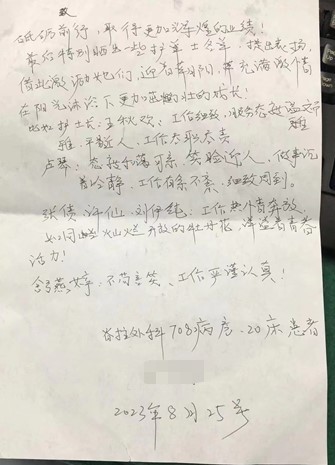 砥砺前行，取得更加辉煌的业绩！
最后特别晒出一些护士名单，提出表扬，
借此激励她们，迎着朝阳，再充满激情
在阳光沐浴下更加茁壮的成长！
比如护士长王秋欢：工作细致，服务态度温文
雅，平易近人，工作尽职尽责
卢琴：态度和蔼可亲，笑脸迎人，做事沉
着冷静，工作有条不紊，细致周到。
张倩、许仙、刘伊纯：工作热情奔放，
如同灿烂开放的牡丹花，洋溢着青春
活力！
舒燕婷：不苟言笑，工作严谨认真！
脊柱外科708病房、20床患者
2023年8月25号